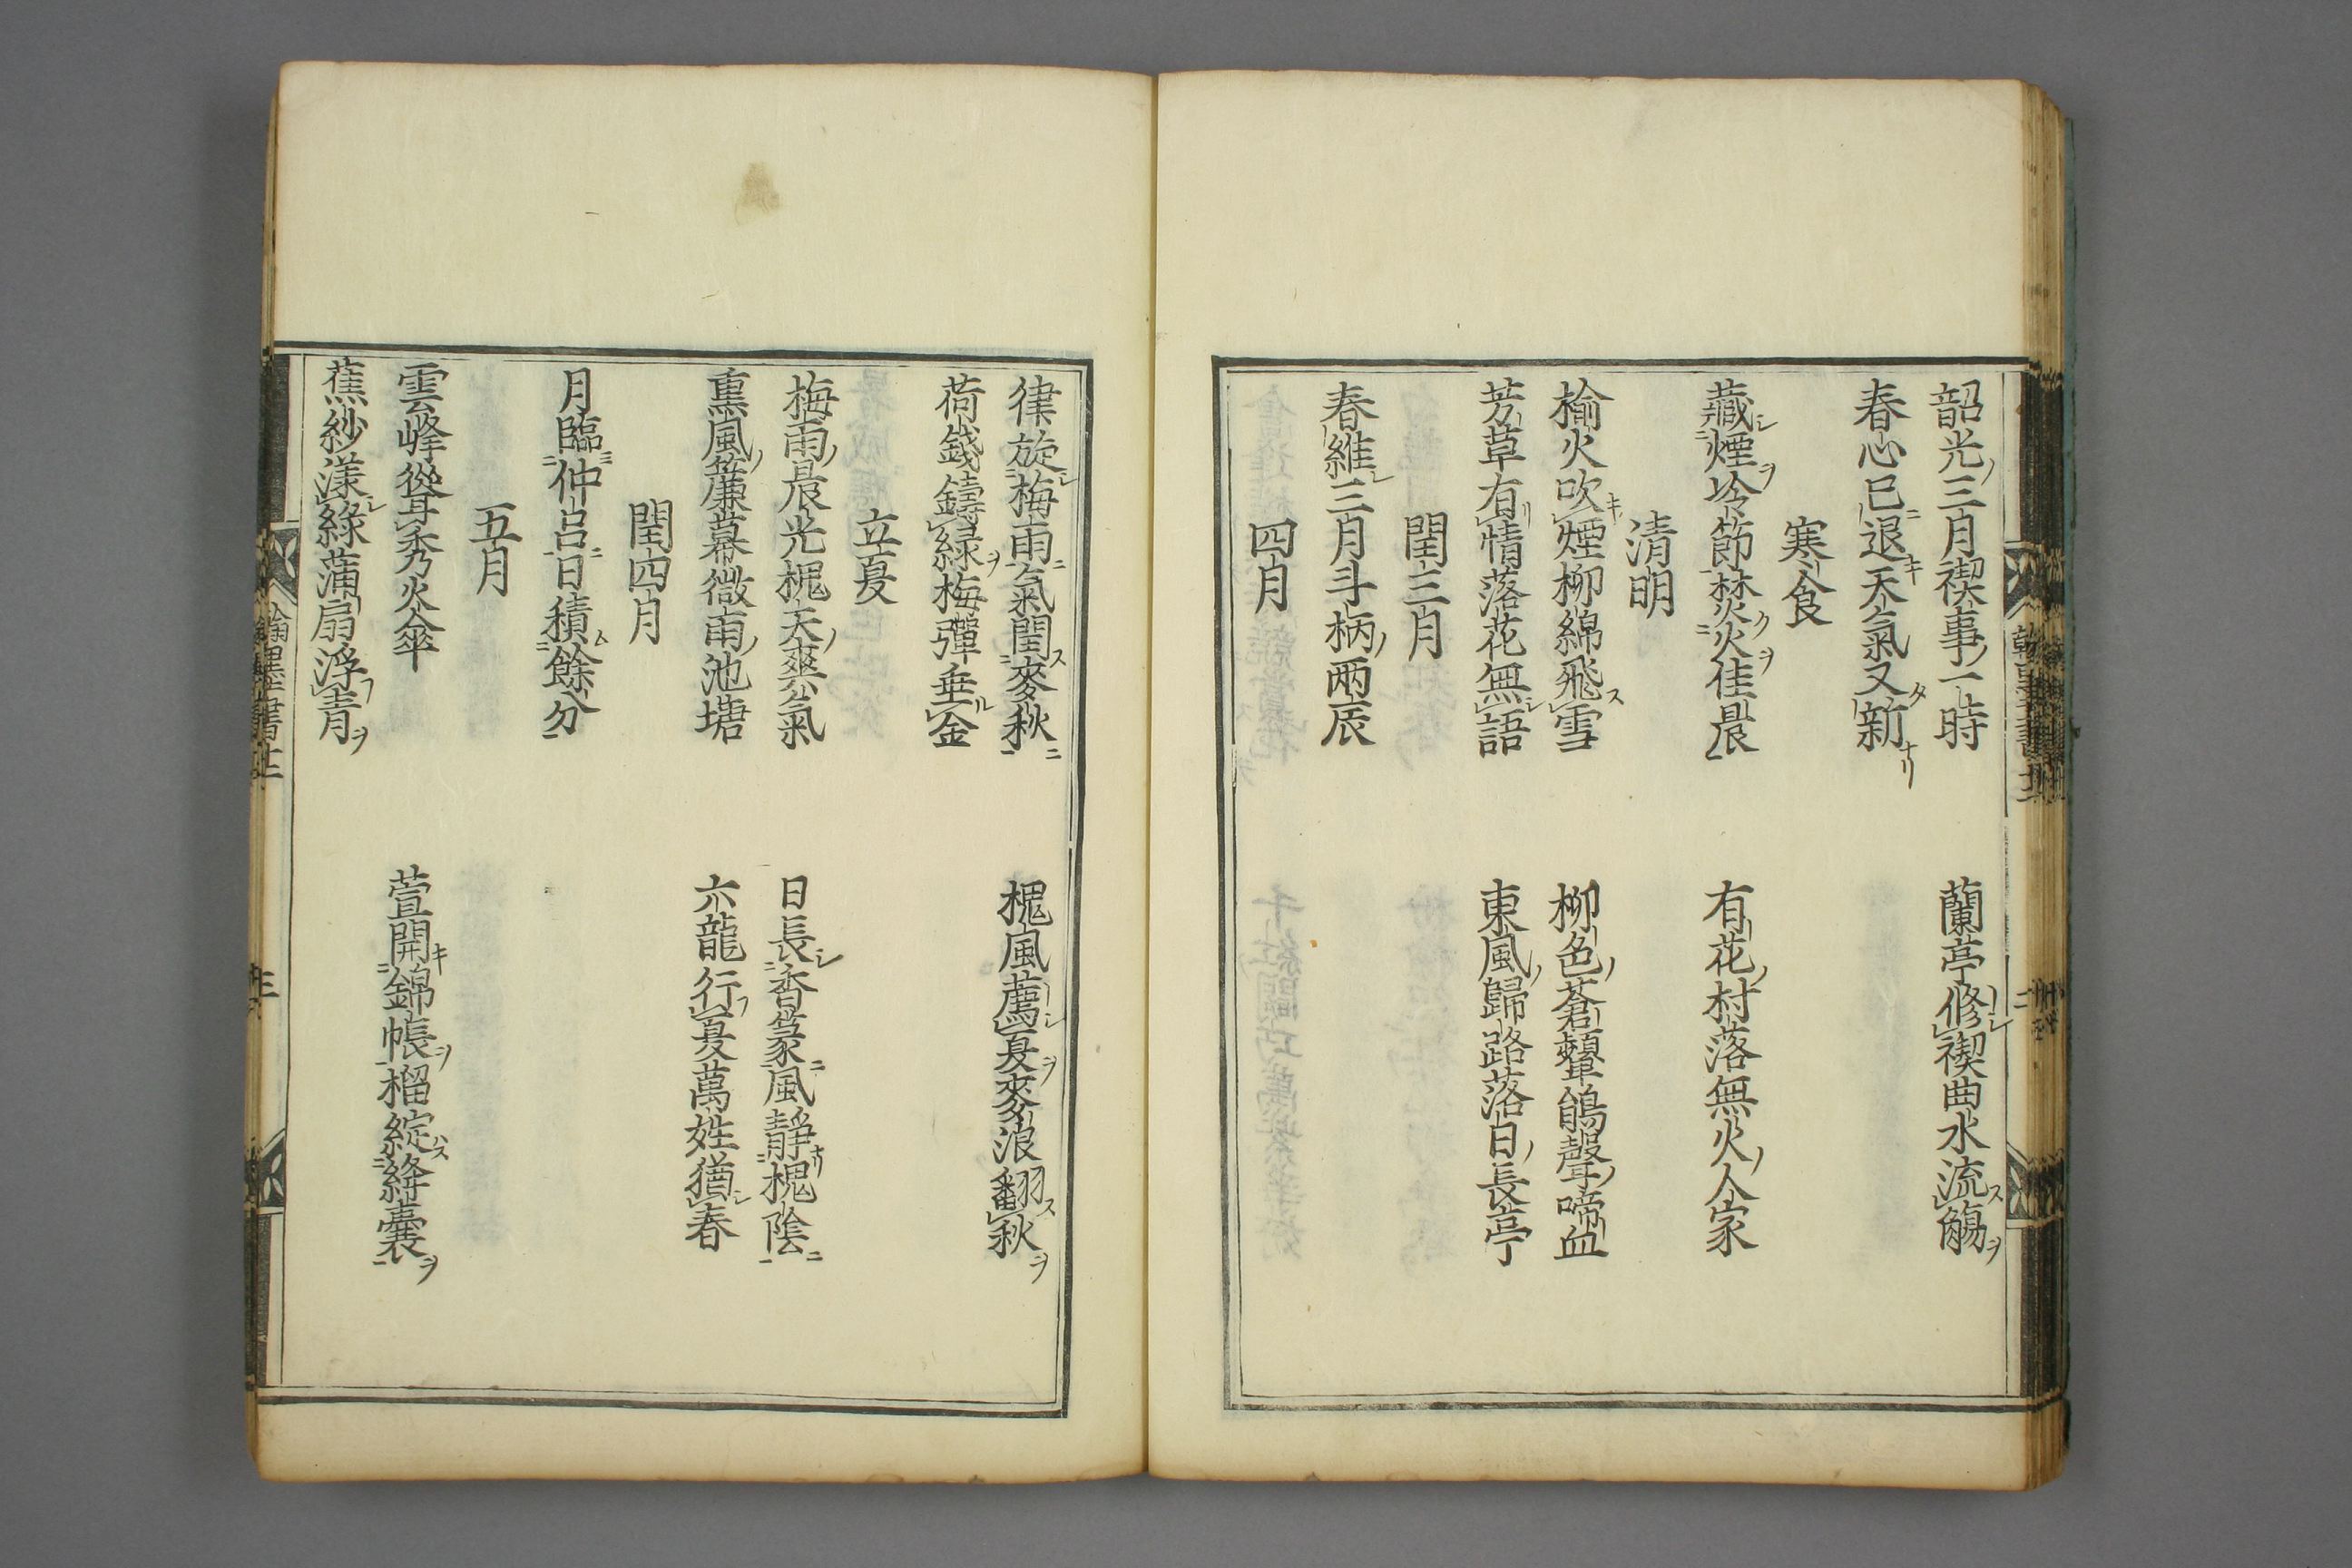 韶光三月禊事一時　蘭亭修禊曲水流觴
春心已退天氣又新
寒食
藏煙冷節禁火佳晨　有花村落無火人家
清明
榆火吹煙柳綿飛雪　柳色蒼顰鵑聲啼血
芳草有情落花無語　東風歸路落日長亭
閏三月
春維三月斗柄兩辰
四月
律旋梅雨氣閏麥秋　槐風薦夏麥浪翻秋
荷錢鑄綠梅彈垂金
立夏
梅雨晨光槐天爽氣　日長香篆風靜槐陰
熏風簾幕微雨池塘　六龍行夏萬姓猶春
閏四月
月臨仲呂日積餘分
五月
雲峰聳秀火傘　萱開錦帳榴綻絳囊
蕉紗漾綠蒲扇浮青
翰墨書上　三